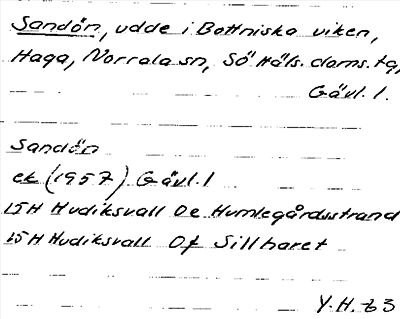 Sandön, udde i Bottniska viken,
Haga, Norrala sn, Sö Häls. doms. tg,
Gävl. l.
Sandön
ek (1957) Gävl. l
15H Hudiksvall 0e Humlegårdsstrand
15H Hudiksvall 0f Sillharet
Y.H. 63